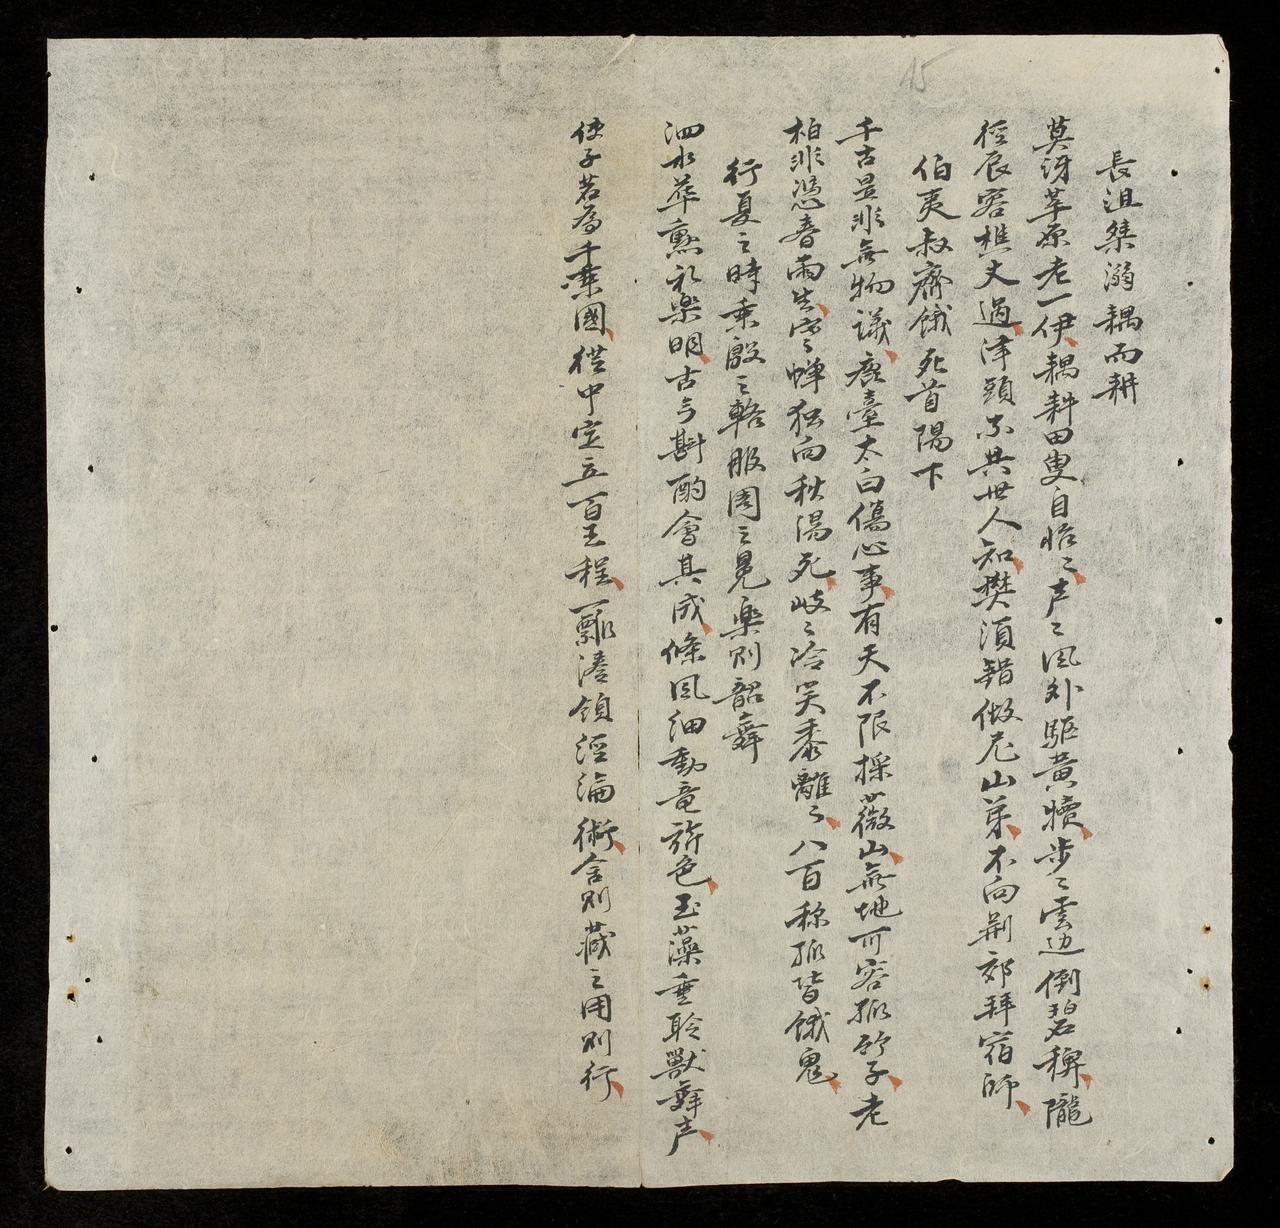 15
長沮桀溺耦而耕
莫訝莘原老一伊耦耕田叟自怡〻声〻風外驅黃犢步〻雲边倒碧稗隴
徑辰容樵丈過津頭不共世人知樊須錯做尼山弟不向荆郊拜宿師
伯夷叔齊餓死首陽下
千古是非無物議鹿臺太白傷心事有天不限採薇山無地可容孤竹子老
柏非憑春雨生寒蟬独向秋湯死岐〻冷笑黍離〻八百称孤皆餓鬼
行夏之時乘殷之輅服周之冕楽則韶舞
泗水華勲礼楽明古今斟酌會其成條風細動竜旂色玉藻垂聆獸舞声
使子若爲千乘國從中定立百王程一瓢湛領涇淪術舍則藏之用則行